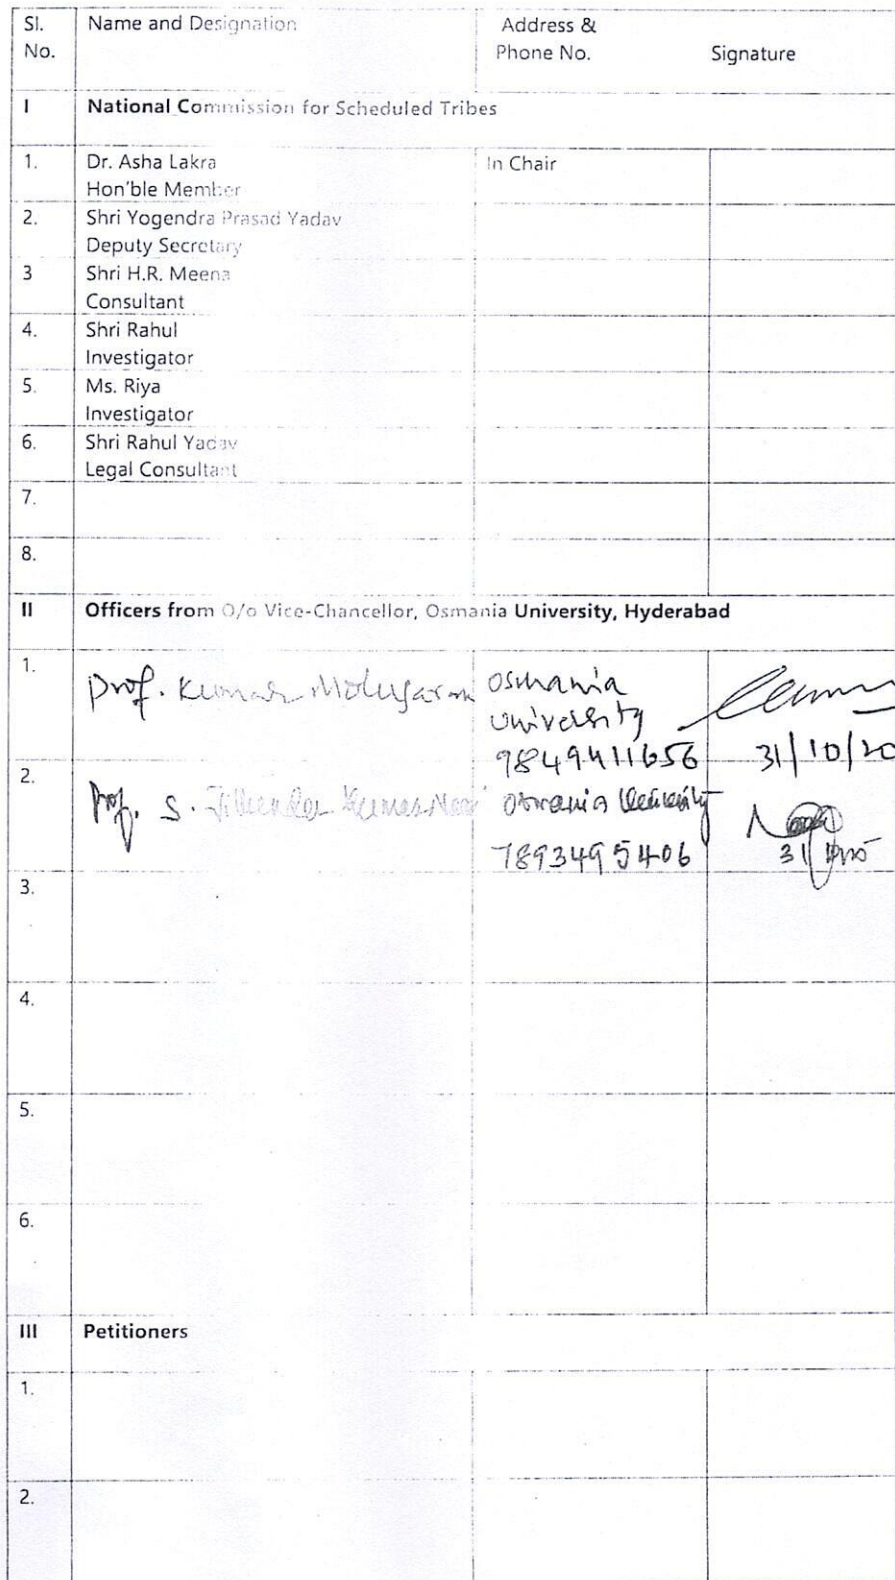 Sl. Name and Designation Address &
No. Phone No. Signature
I National Commission for Scheduled Tribes
1. Dr. Asha Lakra In Chair
Hon'ble Member
2. Shri Yogendra Prasad Yadav
Deputy Secretary
3 Shri H.R. Meena
Consultant
4. Shri Rahul
Investigator
5. Ms. Riya
Investigator
6. Shri Rahul Yadav
Legal Consultant
7.
8.
II Officers from O/o Vice-Chancellor, Osmania University, Hyderabad
1. Prof. Kumar Molugaram Osmania
University
9849411656 31/10/20
2. Prof. S. Kumar Osmania University
7893495406 31
3.
4.
5.
6.
III Petitioners
1.
2.